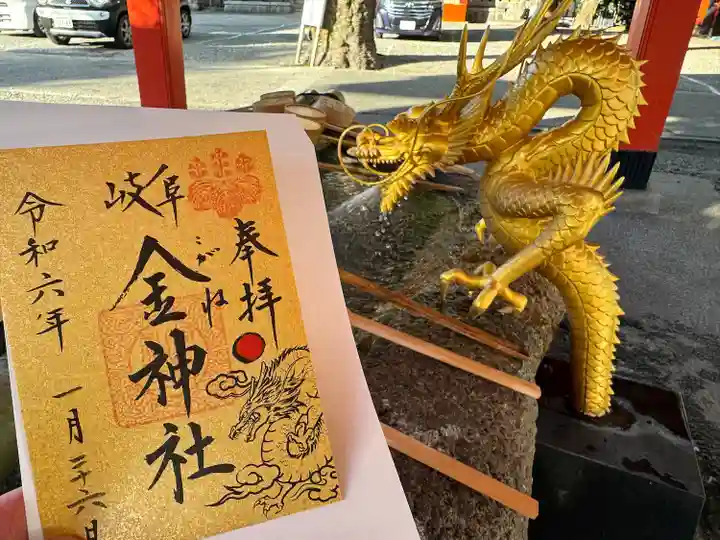 奉拝
岐阜
金神社
こがね
令和六年
一月二十六日